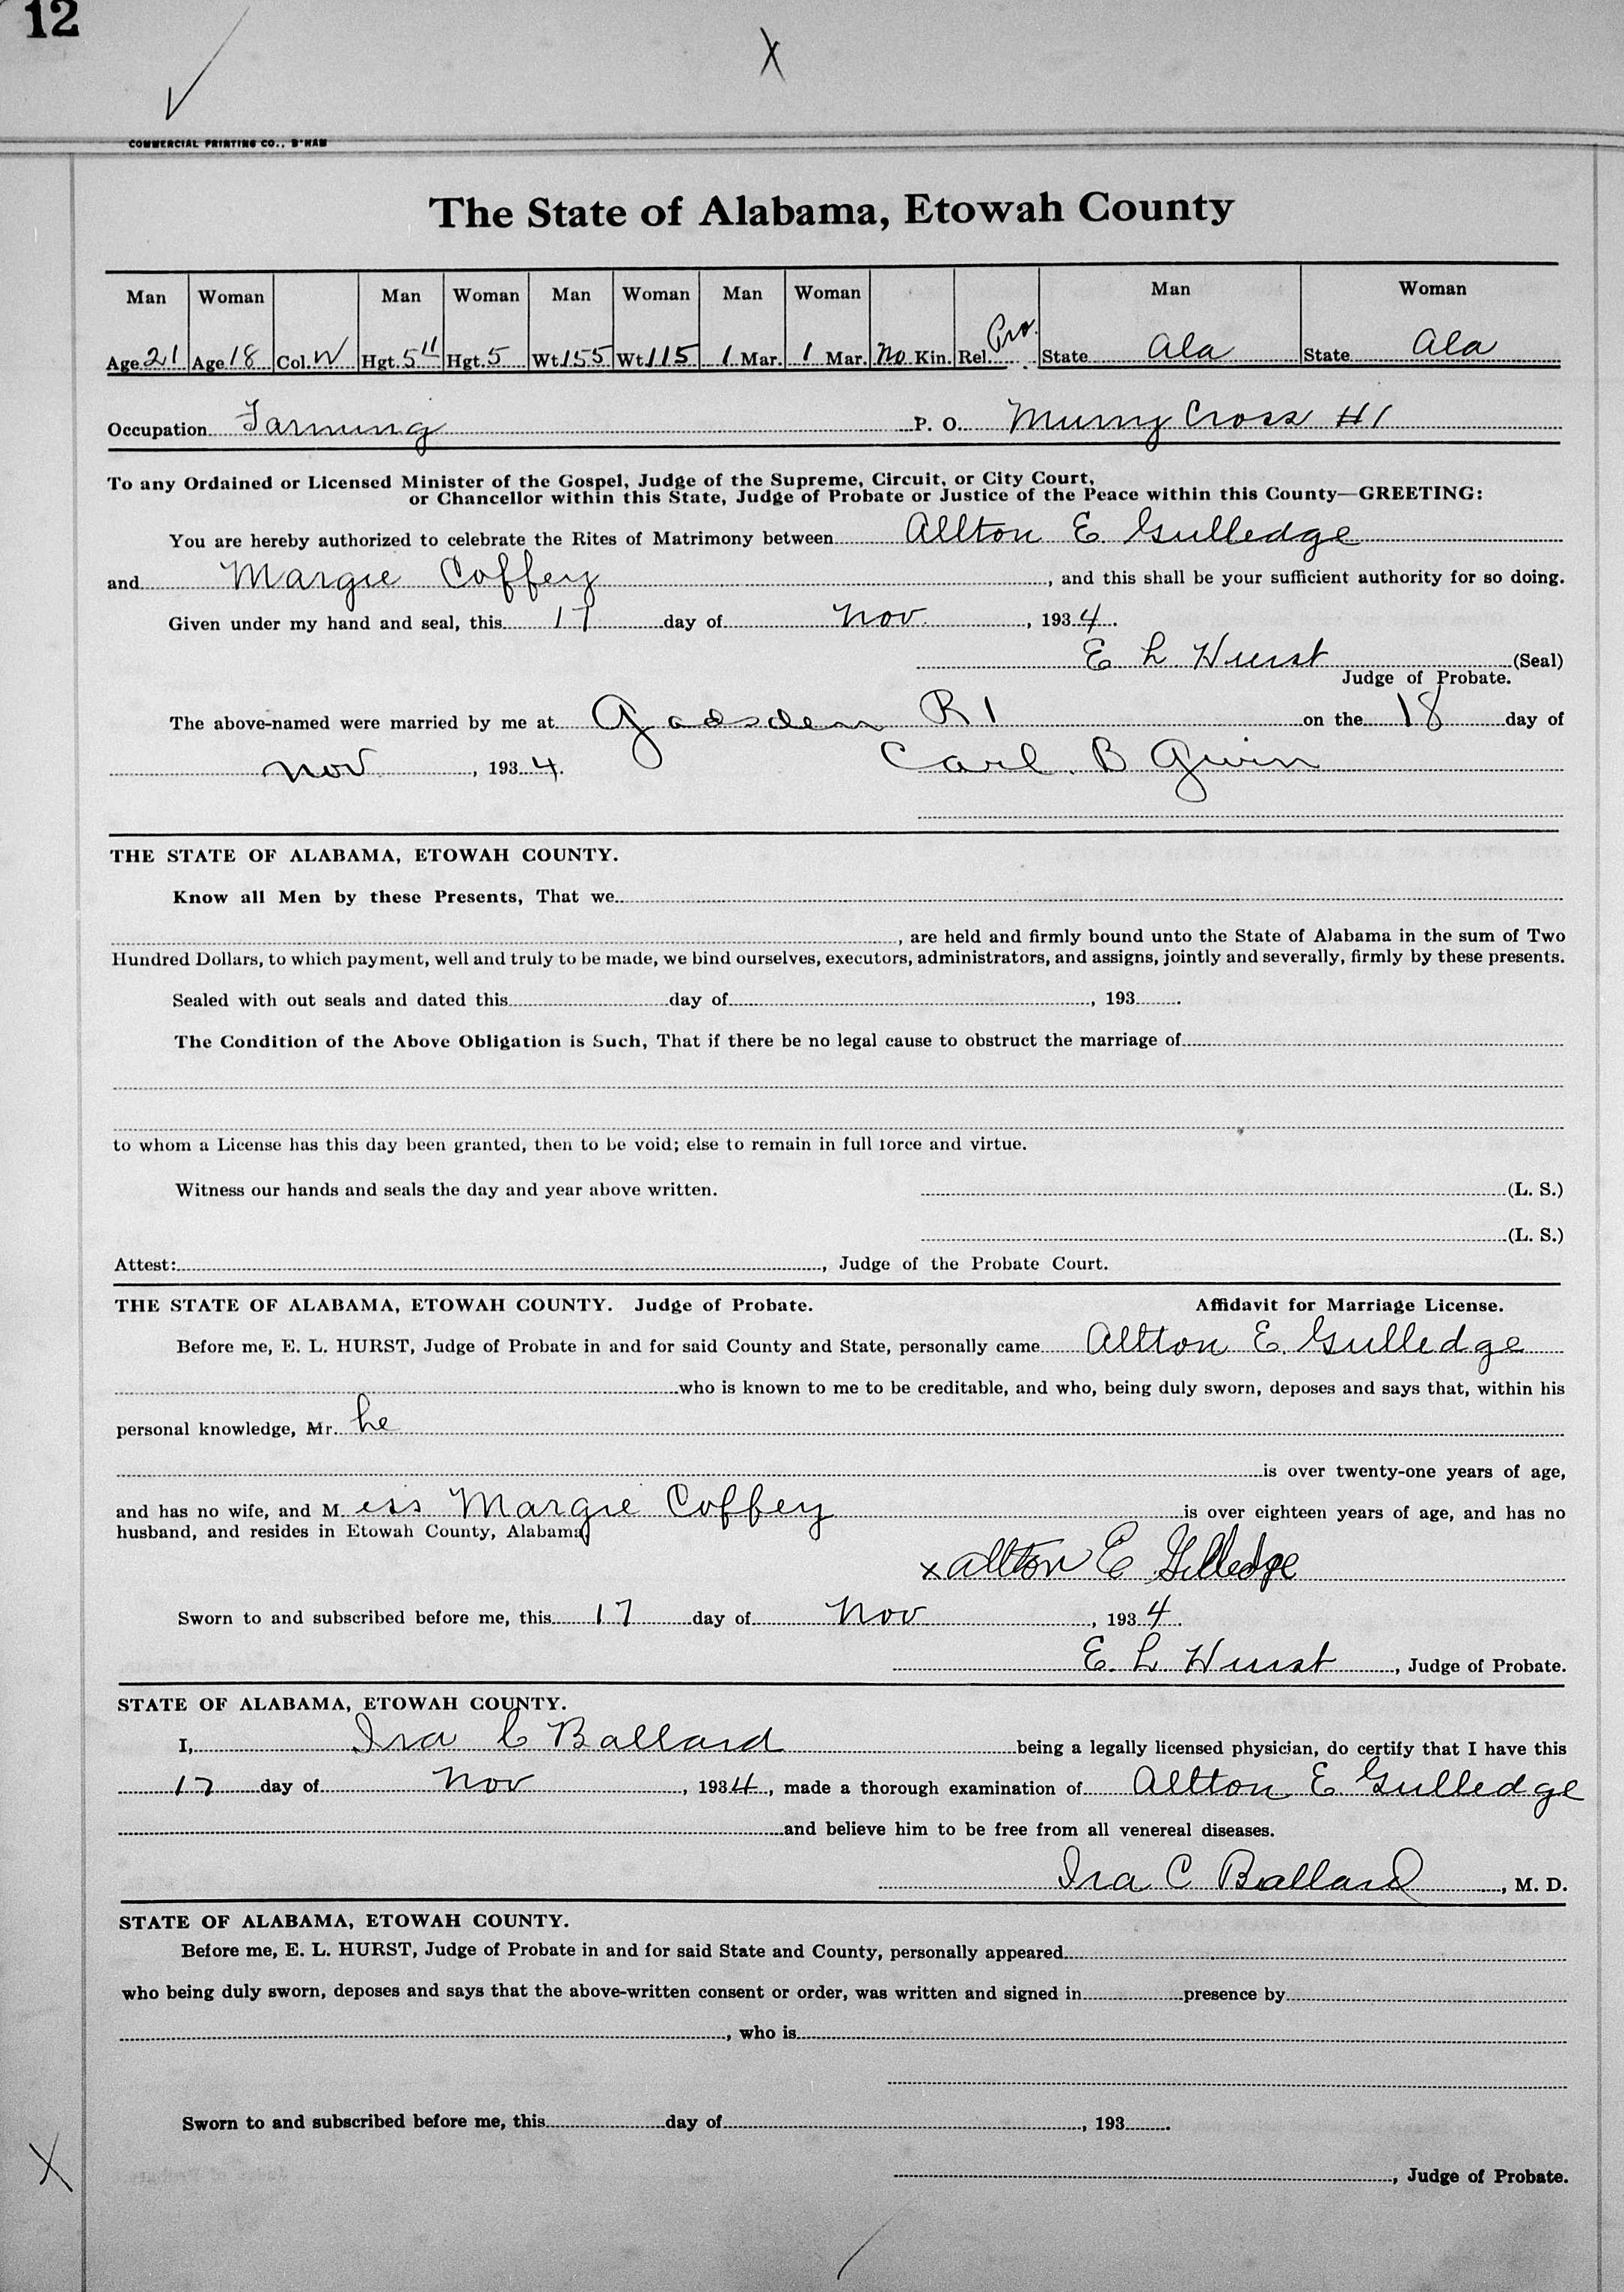 12
COMMERCIAL PRINTING CO., B'HAM
The State of Alabama, Etowah County
Man Woman Man Woman Man Woman Man Woman Man Woman
Age 21 Age 18 Col. W Hgt. 5 11 Hgt. 5 Wt. 155 Wt. 115 1 Mar. 1 Mar. No Kin. Rel. Pro. State Ala State Ala
Occupation Farming P. O. Murry Cross #1
To any Ordained or Licensed Minister of the Gospel, Judge of the Supreme, Circuit, or City Court,
or Chancellor within this State, Judge of Probate or Justice of the Peace within this County—GREETING:
You are hereby authorized to celebrate the Rites of Matrimony between Allton E. Gulledge
and Margie Coffey, and this shall be your sufficient authority for so doing.
Given under my hand and seal, this 17 day of Nov., 1934.
E L Hurst (Seal)
Judge of Probate.
The above-named were married by me at Gadsden R 1 on the 18 day of
Nov, 1934. Carl. B Gwin
THE STATE OF ALABAMA, ETOWAH COUNTY.
Know all Men by these Presents, That we
, are held and firmly bound unto the State of Alabama in the sum of Two
Hundred Dollars, to which payment, well and truly to be made, we bind ourselves, executors, administrators, and assigns, jointly and severally, firmly by these presents.
Sealed with out seals and dated this day of , 193
The Condition of the Above Obligation is Such, That if there be no legal cause to obstruct the marriage of
to whom a License has this day been granted, then to be void; else to remain in full force and virtue.
Witness our hands and seals the day and year above written. (L. S.)
(L. S.)
Attest: , Judge of the Probate Court.
THE STATE OF ALABAMA, ETOWAH COUNTY. Judge of Probate. Affidavit for Marriage License.
Before me, E. L. HURST, Judge of Probate in and for said County and State, personally came Allton E. Gulledge
who is known to me to be creditable, and who, being duly sworn, deposes and says that, within his
personal knowledge, Mr. he
is over twenty-one years of age,
and has no wife, and M iss Margie Coffey is over eighteen years of age, and has no
husband, and resides in Etowah County, Alabama
x Allton E Gulledge
Sworn to and subscribed before me, this 17 day of Nov, 1934.
E. L Hurst, Judge of Probate.
STATE OF ALABAMA, ETOWAH COUNTY.
I, Ira C Ballard being a legally licensed physician, do certify that I have this
17 day of Nov, 1934, made a thorough examination of Allton E. Gulledge
and believe him to be free from all venereal diseases.
Ira C Ballard, M. D.
STATE OF ALABAMA, ETOWAH COUNTY.
Before me, E. L. HURST, Judge of Probate in and for said State and County, personally appeared
who being duly sworn, deposes and says that the above-written consent or order, was written and signed in presence by
, who is
Sworn to and subscribed before me, this day of , 193
, Judge of Probate.